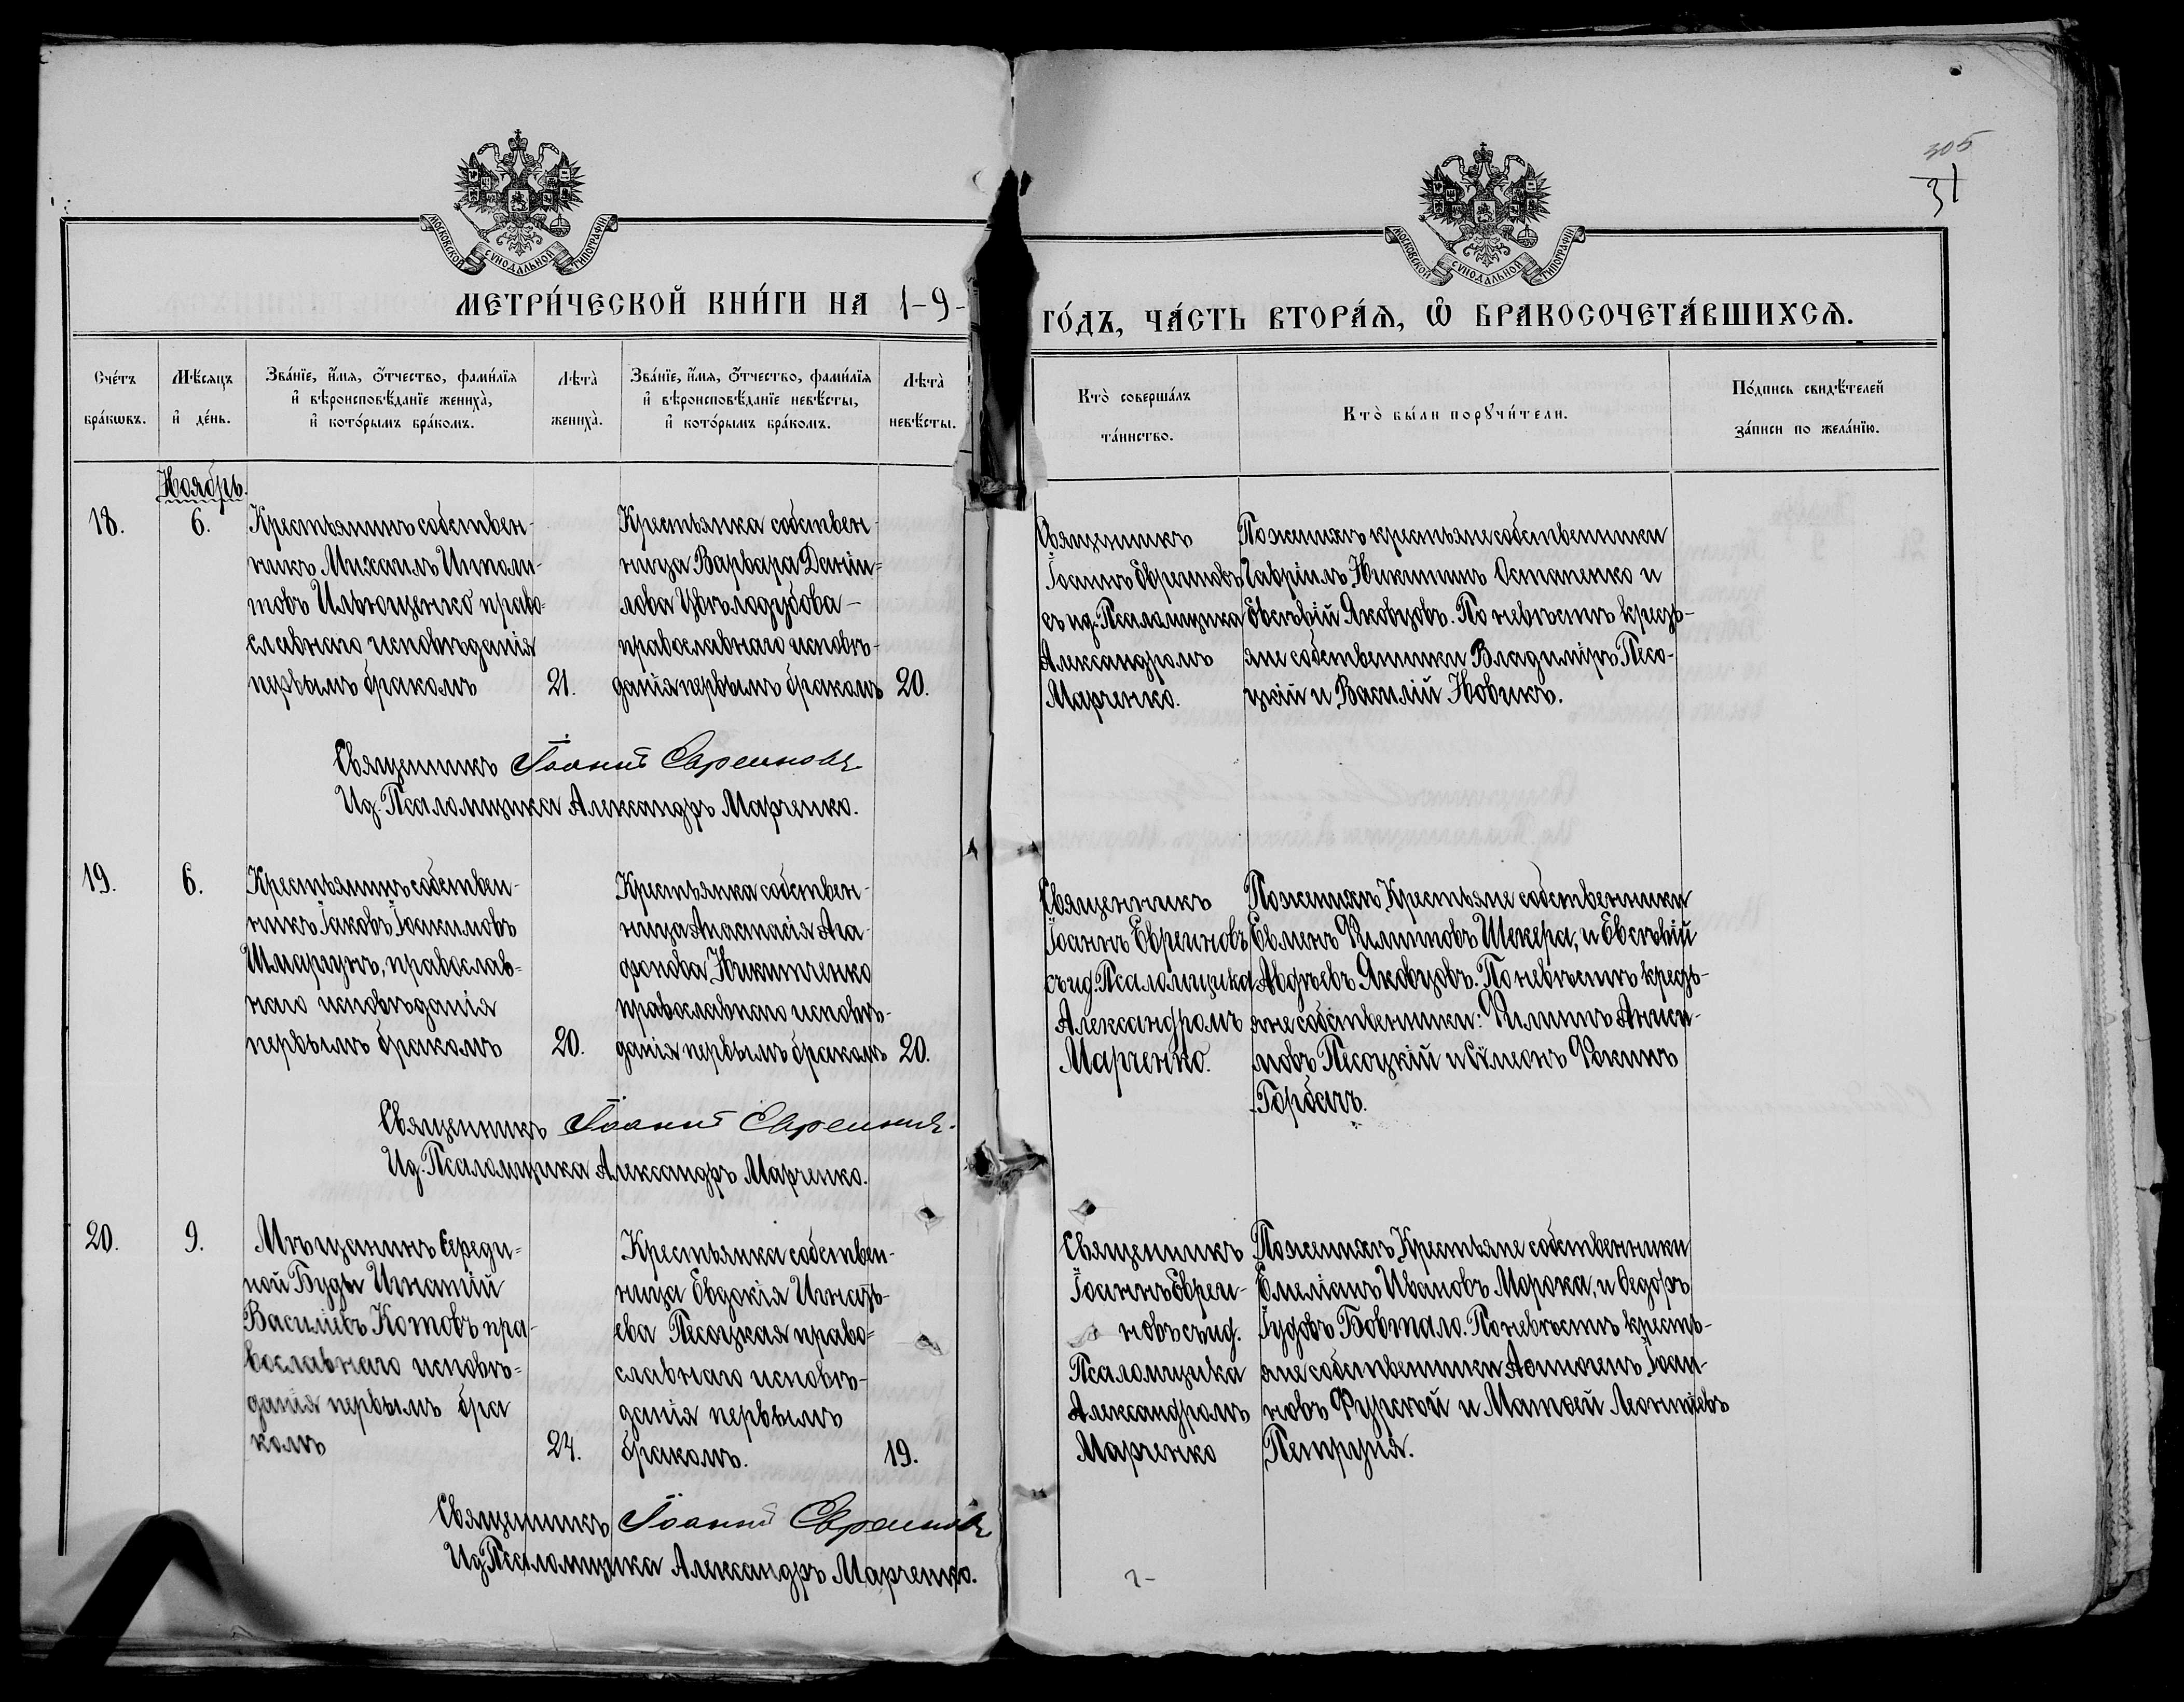 305
31
МОСКОВСКОЙ СУНОДАЛЬНОЙ ТИПОГРАФІИ
МОСКОВСКОЙ СУНОДАЛЬНОЙ ТИПОГРАФІИ
МЕТРИ́ЧЕСКОЙ КНИ́ГИ НА 1-9-
ГО́ДЪ, ЧА́СТЬ ВТОРА́Ѧ, Ѽ БРАКОСОЧЕТА́ВШИХСѦ.
Сче́тъ
бра́кѡвъ.
Мѣ́сяцъ
и де́нь.
Зва́нїе, и́мя, ѻ́тчество, фами́лїя
и вѣроисповѣ́данїе жениха̀,
и кото́рымъ бра́комъ.
Лѣта̀
жениха̀.
Зва́нїе, и́мя, ѻ́тчество, фами́лїя
и вѣроисповѣ́данїе невѣ́сты,
и кото́рымъ бра́комъ.
Лѣта̀
невѣ́сты.
Кто̀ соверша́лъ
та́инство.
Кто̀ бы́ли порꙋчи́тели.
По́дпись свидѣ́телей
за́писи по жела́нїю.
Ноябрь.
18.
6.
Крестьянинъ собствен
никъ Михаилъ Иполи-
товъ Ильющенко право-
славнаго исповѣданія
первымъ бракомъ
21.
Крестьянка собствен-
ница Варвара Даніи-
лова
православнаго исповѣ-
данія первымъ бракомъ
20.
Священникъ
Іоаннъ Евреиновъ
съ ид. Псаломщика
Александромъ
Марченко.
По женихѣ крестьяне собственники
Гавріилъ Никитинъ Остапенко и
Евсѣвій Яковцовъ. По невѣстѣ кресть-
яне собственники Владиміръ Песо-
цкій и Василій Новикъ.
Священникъ Іоаннъ Евреиновъ
Ид. Псаломщика Александръ Марченко.
19.
6.
Крестьянинъ собствен-
никъ Іаковъ Іоакимовъ
православ-
наго исповѣданія
первымъ бракомъ
20.
Крестьянка собствен-
ница Анастасія Ага-
фонова Никитченко
православнаго исповѣ-
данія первымъ бракомъ
20.
Священникъ
Іоаннъ Евреиновъ
съ ид. Псаломщика
Александромъ
Марченко.
По женихѣ Крестьяне собственники
Евменъ Филиповъ Шекера, и Евсѣвій
Авдѣевъ Яковцовъ. По невѣстѣ кресть-
яне собственники: Филипъ Аниси-
мовъ Песоцкій и Сѵмеонъ Фокинъ
Горбачъ.
Священникъ Іоаннъ Евреиновъ.
Ид. Псаломщика Александръ Марченко.
20.
9.
Мѣщанинъ Середи-
ной Буды Игнатій
Василіевъ Котовъ пра-
вославнаго исповѣ-
данія первымъ бра
комъ
24.
Крестьянка собствен-
ница Евдокія Игнать-
ева Песоцкая право-
славнаго исповѣ-
данія первымъ
бракомъ.
19.
Священникъ
Іоаннъ Евреи-
новъ съ ид.
Псаломщика
Александромъ
Марченко
По женихѣ Крестьяне собственники
Емеліанъ Ивановъ Морока, и Ѳедоръ
Іудовъ Бовтало. По невѣстѣ кресть-
яне собственники Іоан-
новъ Фурсой и Матѳей Леонтіевъ
Петруня.
Священникъ Іоаннъ Евреиновъ
Ид. Псаломщика Александръ Марченко.